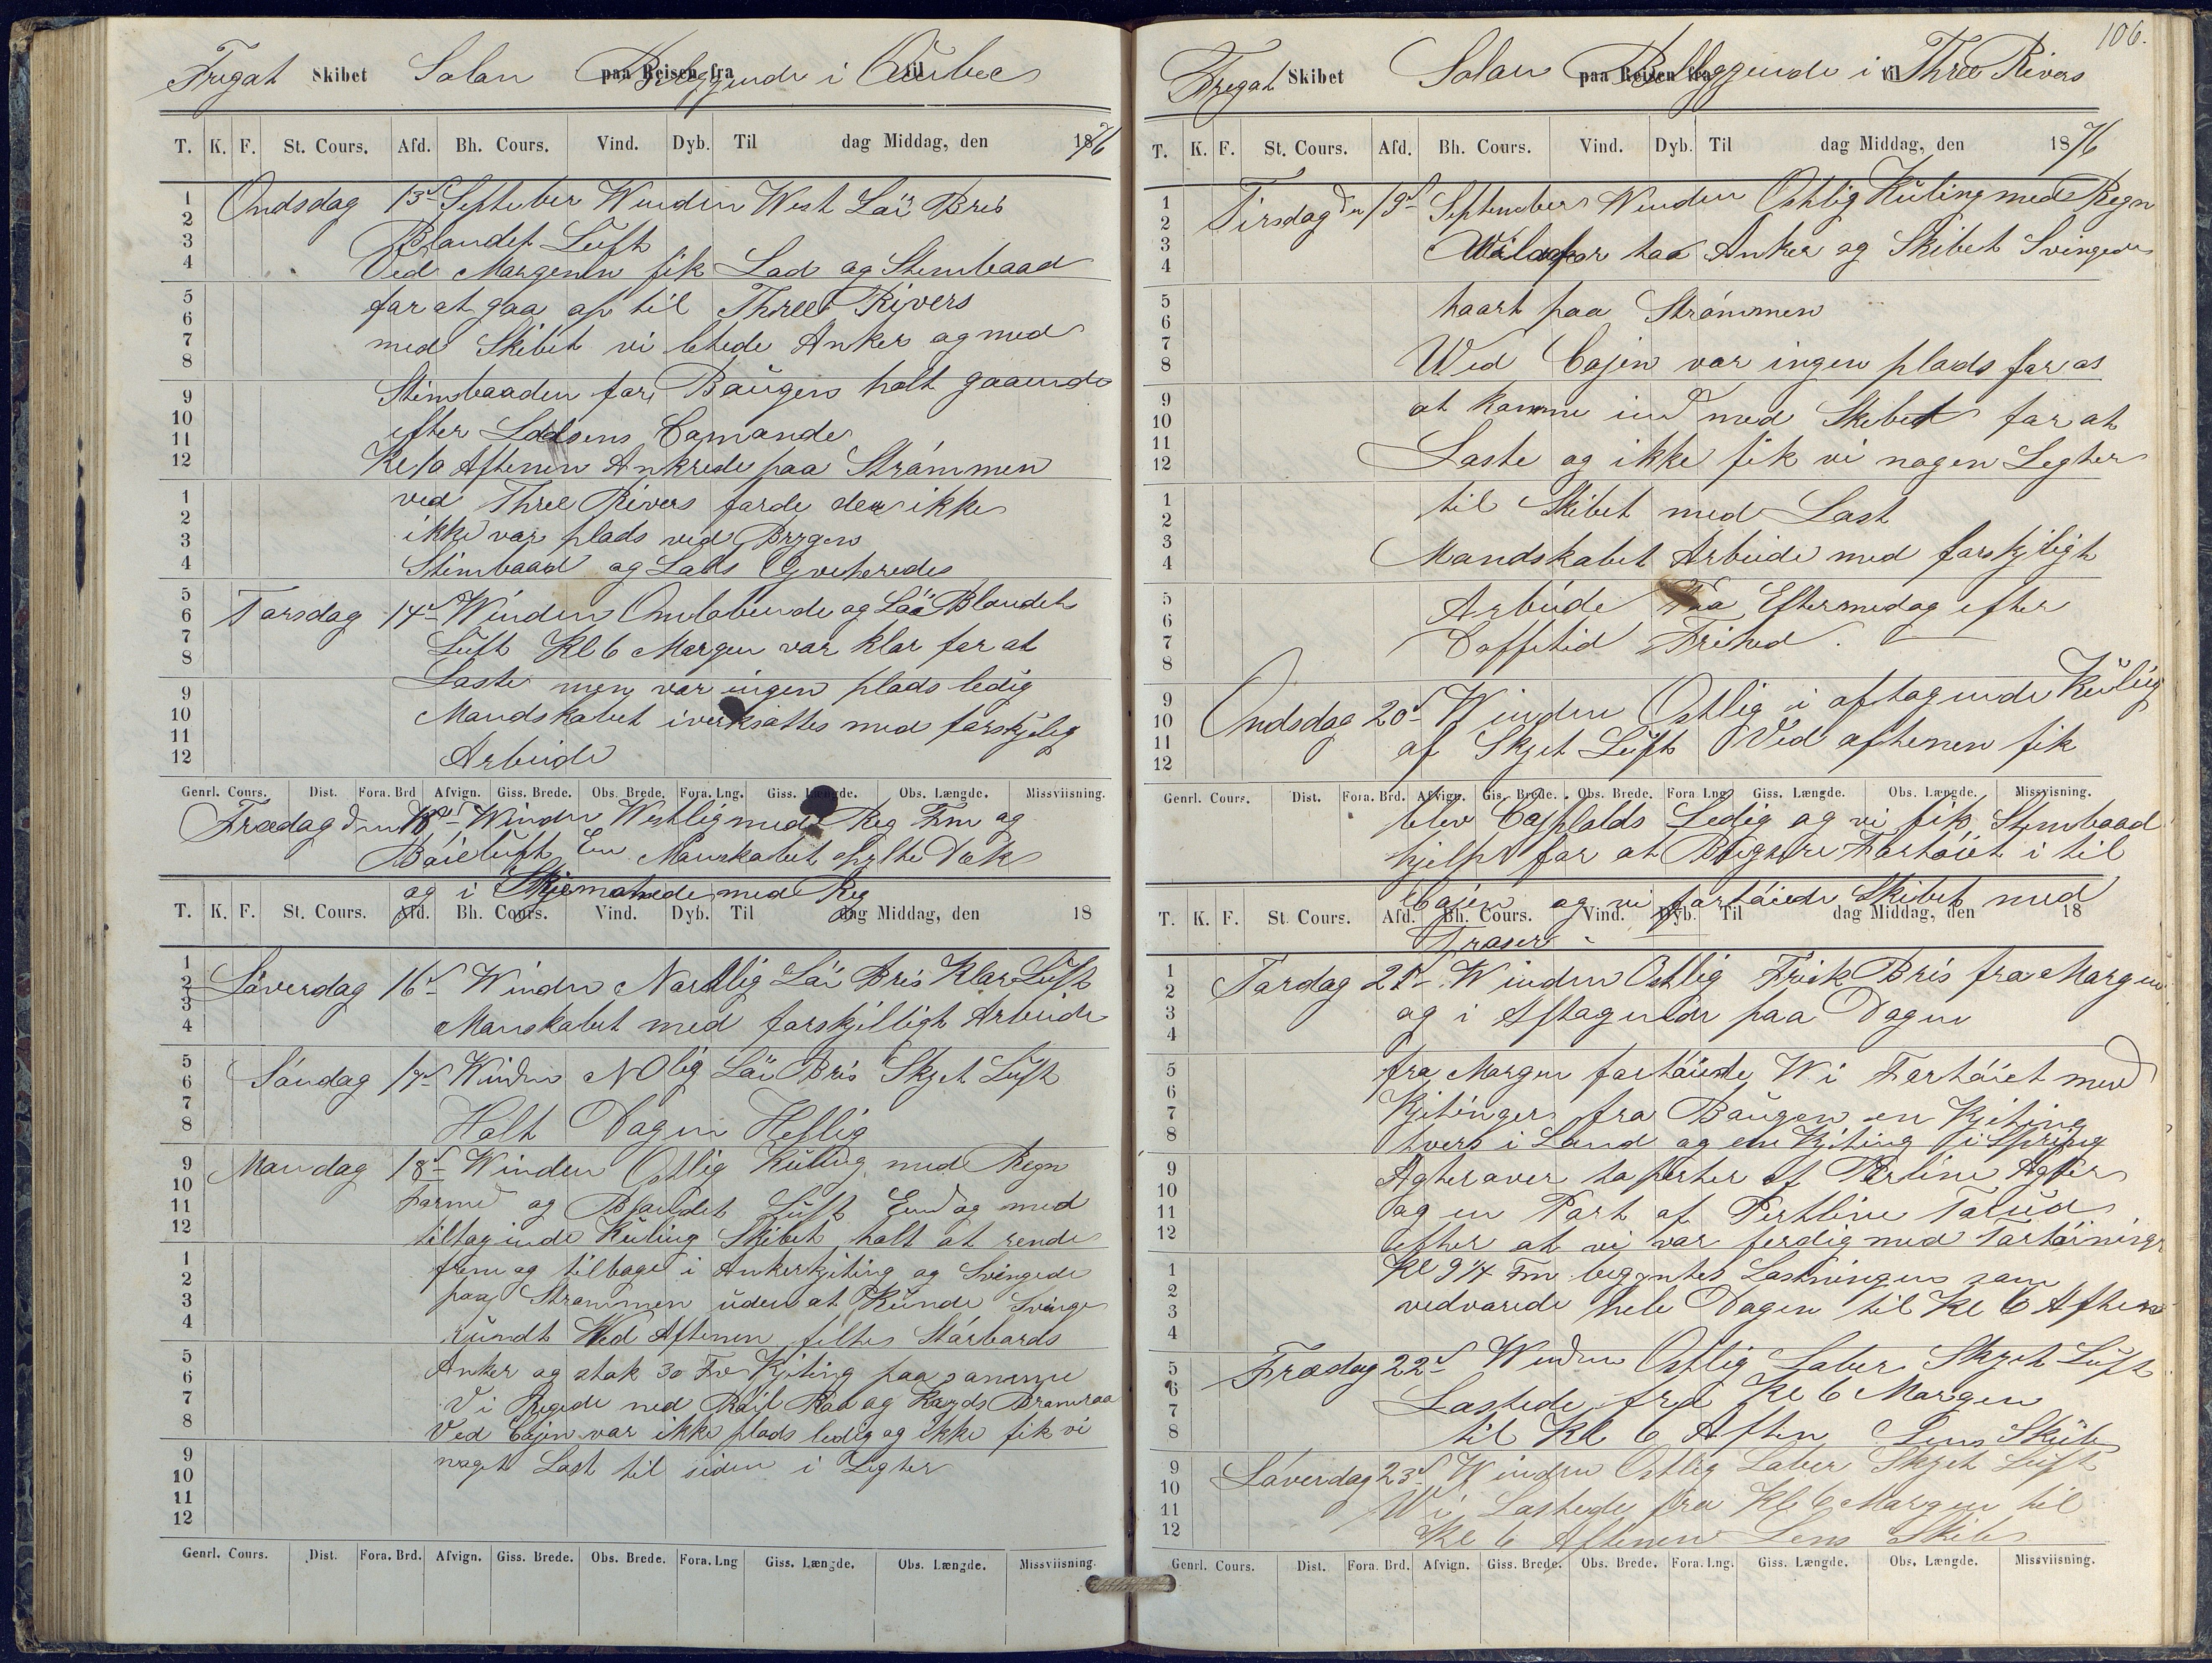 Fregat Skibet Solan paa Reisen fra Beleggende i til Qúebec
T. K. F. St. Cours. Afd. Bh. Cours. Vind. Dyb. Til dag Middag, den 1876
Ondsdag 13d Septeber Winden West Láú Bris
Blandet Lúft
Ved Margenen fik Lads og Stembaad
far at gaa op til Three Rivers
med Skibet vi letede Anker og med
Stimbaaden far Baúgen halt gaaende
efter Lodsens Comando
Kl 10 Aftenen Ankrede paa Strámmen
ved Three Rivers farde der ikke
ikke var plads ved Brygen
Stimbaad og Lads Qveterede
Tarsdag 14d Winden Omlobende og Láú Blandet
Lúft Kl 6 Margen var klar far at
Laste men var ingen plads ledig
Mandskabet iverksattes med farskjelig
Arbeide
Genrl. Cours. Dist. Fora. Brd Afvign. Giss. Brede. Obs. Brede. Fora. Lng. Giss. Længde. Obs. Længde. Missviisning.
Fredag den Winden Westlig med Reg Fm og
Lúft Em Manskabet spylte Dæk
og i med Reg
T. K. F. St. Cours. Afd. Bh. Cours. Vind. Dyb. Til dag Middag, den 18
Láverdag 16d Winden Nordlig Láú Bris Klar Lúft
Manskabet med farskjilligt Arbeide
Sándag 17d Winden NOlig Láú Bris Skyet Lúft
Halt Dagen Hellig
Mandag 18d Winden Ostlig Kúling med Regn
Farmd og Blandet Lúft Emd og med
tiltagende Kúling Skibet halt at rende
frem og tilbage i Ankerkjeting og Svingede
paa Strammen úden at Kúnde Svinge
rúndt Wed Aftenen feltes Stárbards
Anker og stak 30 Fv Kjeting paa samme
Vi Regede ned Róil Raa og Kryds Bramraa
Ved Cajen var ikke plads ledig og ikke fik vi
naget Last til siden i Legter
Genrl. Cours. Dist. Fora. Brd. Afvign. Giss. Brede. Obs. Brede. Fora. Lng Giss. Længde. Obs. Længde. Missviisning.
106.
Fregat Skibet Solan paa Reisen fra Beleggende i til Three Rivers
T. K. F. St. Cours. Afd. Bh. Cours. Vind. Dyb. Til dag Middag, den 1876
Tirsdag den 19d September Winden Ostlig Kúling med Regn
far toa Anker og Skibet Svingede
haart paa Strámmen
Wed Cajen var ingen plads far os
at komme ind med Skibet far at
Laste og ikke fik vi nagen Legter
til Skibet med Last
Mandskabet Arbeide med farskjeligt
Arbúde Fra Eftermedag efter
Daffetid Frihed.
Ondsdag 20d Winden Ostlig i aftagende Kúling
af Skyet Lúft Ved aftenen fik
Genrl. Cours. Dist. Fora. Brd. Afvign. Gis. Brede. Obs. Brede. Fora Lng Giss. Længde. Obs. Længde. Missvisning.
blev Cajplads Ledig og vi fik Stembaad
hjelp far at Fartóiet i til
T. K. F. St. Cours. Afd. Bh. Cours. Vind. Dyb. Til dag Middag, den 18
Cajen og vi fartóiede Skibet med
Traser
Tarsdag 21d Winden Ostlig Frisk Bris fra Margen
og i Aftagende paa Dagen
fra Margen fartóiede Wi Fartóiet med
Kjetinger fra Baúgen en Kjeting
tvers i Land og en Kjeting i Spring
Agteraver to parter af Pertline Agter
og en Part af Pertline Farúd
efter at vi var ferdig med Fartóiningen
Kl 9 1/4 Fm begyntes Lastningen sam
vedvarede hele Dagen til Kl 6 Aften
Fredag 22d Winden Ostlig Laber Skyet Lúft
Lastede fra Kl 6 Margen
til Kl 6 Aften Lens Skib
Láverdag 23d Winden Ostlig Laber Skyet Lúft
Wi Lastede fra Kl 6 Margen til
Kl 6 Aftenen Lens Skib
Genrl. Cours. Dist. Fora. Brd. Afvign. Giss. Brede. Obs. Brede. Fora. Lng. Giss. Længde. Obs. Længde. Missviisning.